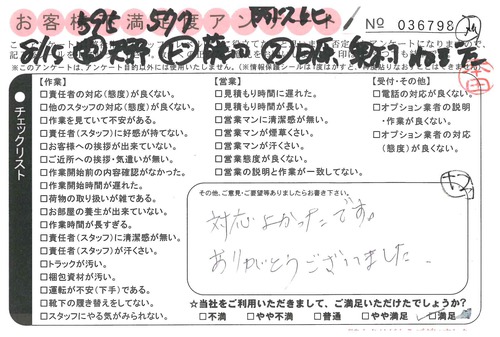 お客様満足度アン
No 036798
チェックリスト
【作業】
□責任者の対応(態度)が良くない。
□他のスタッフの対応(態度)が良くない。
□作業を見ていて不安がある。
□責任者(スタッフ)に好感が持てない。
□お客様への挨拶が出来ていない。
□ご近所への挨拶・気遣いが無い。
□作業開始前の内容確認がなかった。
□作業開始時間が遅れた。
□荷物の取り扱いが雑である。
□お部屋の養生が出来ていない。
□作業時間が長すぎる。
□責任者(スタッフ)に清潔感が無い。
□責任者(スタッフ)が汗くさい。
□トラックが汚い。
□梱包資材が汚い。
□運転が不安(下手)である。
□靴下の履き替えをしてない。
□スタッフにやる気がみられない。
【営業】
□見積もり時間に遅れた。
□見積もり時間が長い。
□営業マンに清潔感が無い。
□営業マンが煙草くさい。
□営業マンが汗くさい。
□営業態度が良くない。
□営業の説明と作業が一致してない。
【受付・その他】
□電話の対応が良くない。
□オプション業者の説明
・作業が良くない。
□オプション業者の対応
(態度)が良くない。
その他、ご意見・ご要望等ありましたらお書き下さい。
対応よかったです。
ありがとうございました。
☆当社をご利用いただきまして、ご満足いただけたでしょうか?
□不満 □やや不満 □普通 □やや満足 □満足